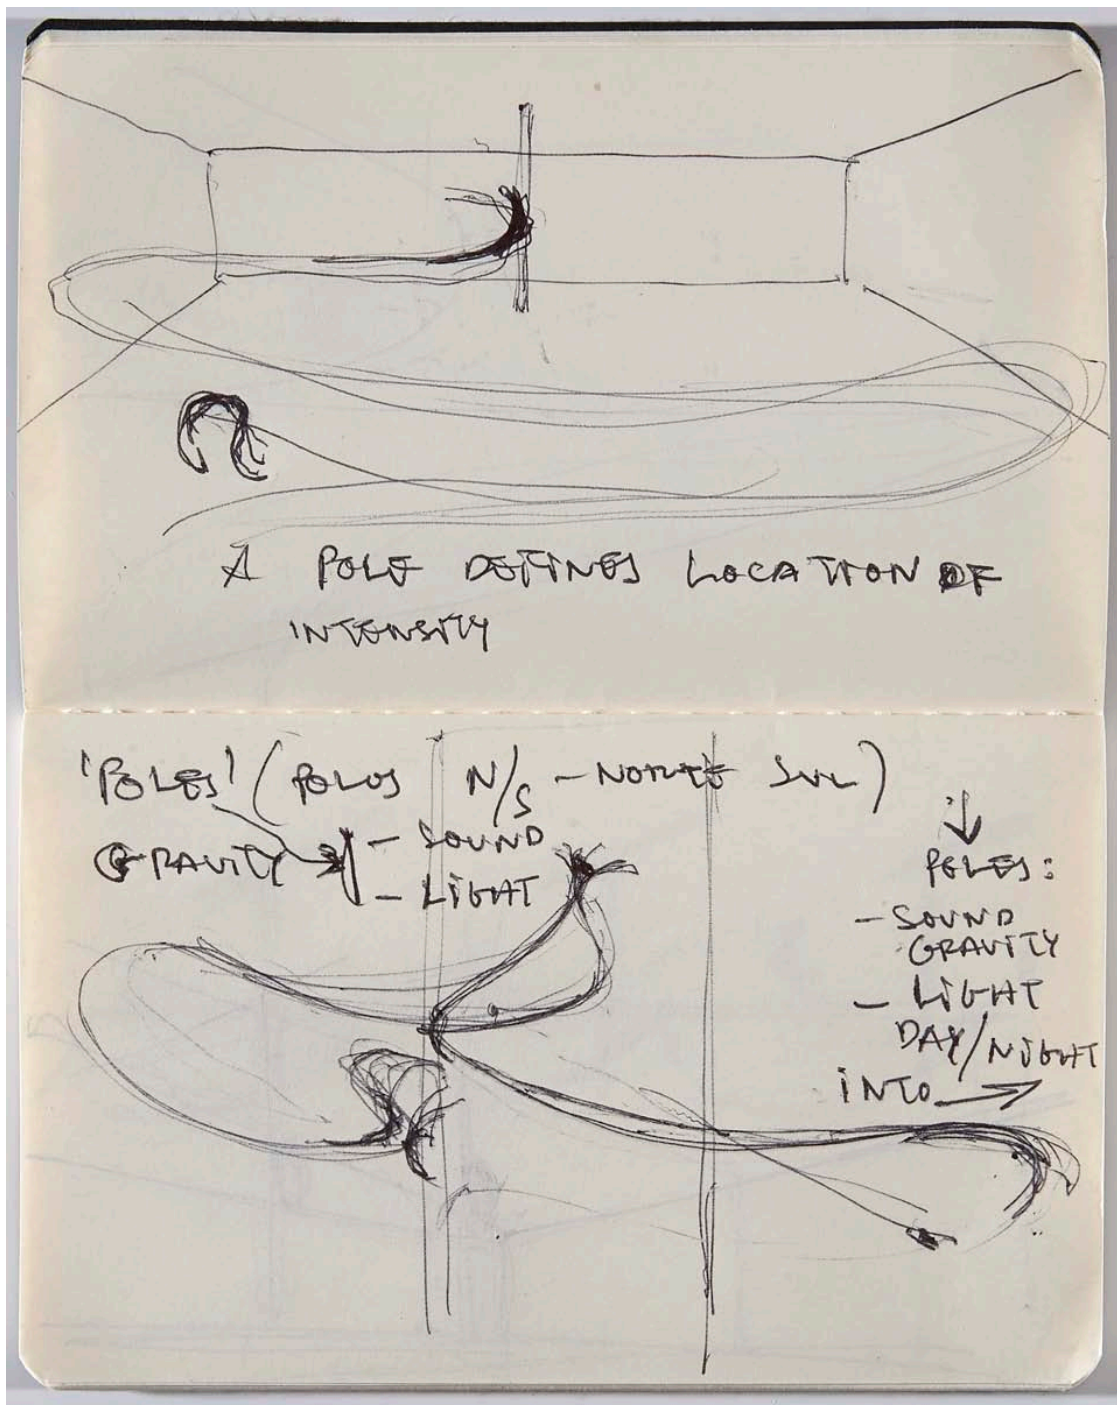 A POLE DEFINES LOCATION OF
INTENSITY
'POLES' (POLOS N/S - NORTE SUL)
GRAVITY - SOUND
- LIGHT
↓
POLES:
- SOUND
GRAVITY
- LIGHT
DAY/NIGHT
INTO →